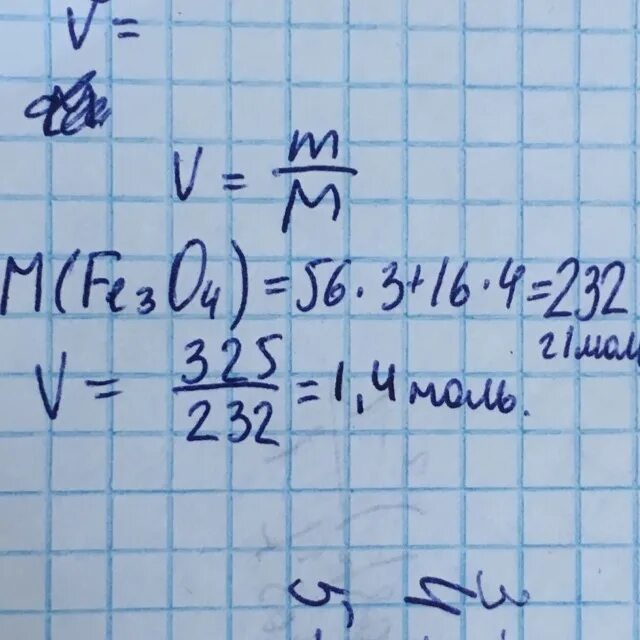 V =
V = m/M
M(Fe₃O₄) = 56·3+16·4=232
г/моль
V = 325/232 = 1,4 моль.